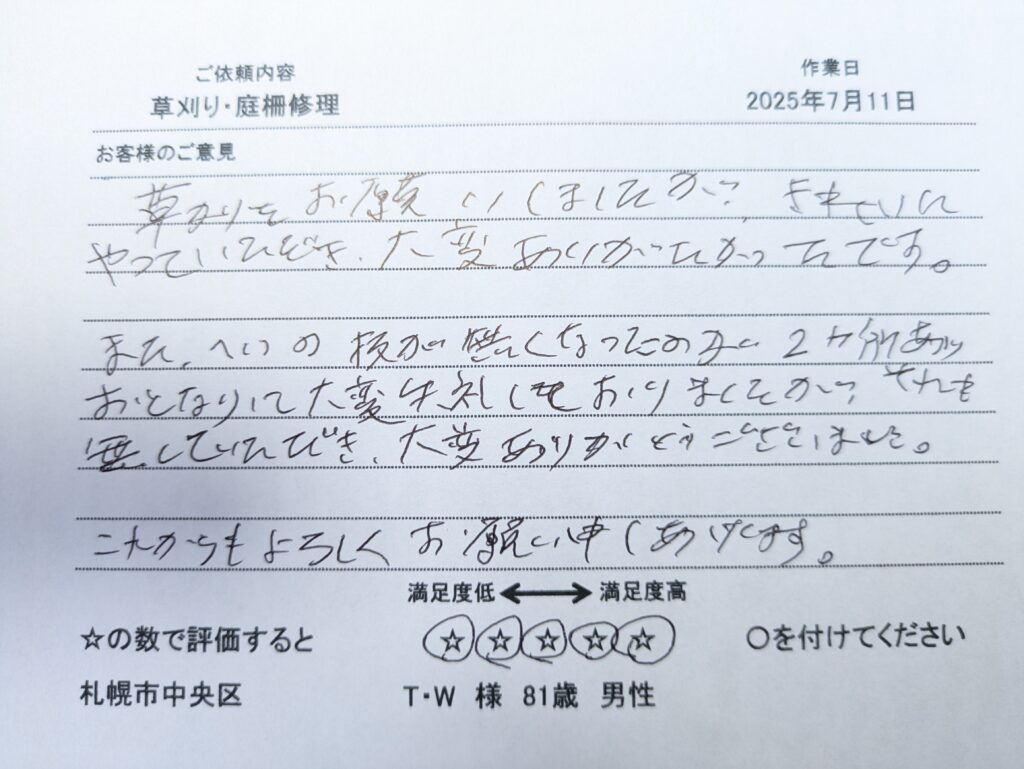 ご依頼内容
作業日
草刈り・庭柵修理
2025年7月11日
お客様のご意見
草かりをお願いしましたが、きれいに
やっていただき、大変ありがたかったです。
また、へいの板が無くなったのが2ヶ所あり
おとなりに大変失礼しておりましたが、それも
直していただき、大変ありがとうございました。
これからもよろしくお願い申しあげます。
満足度低 ⟷ 満足度高
☆の数で評価すると ☆☆☆☆☆ 〇を付けてください
札幌市中央区 T・W 様 81歳 男性